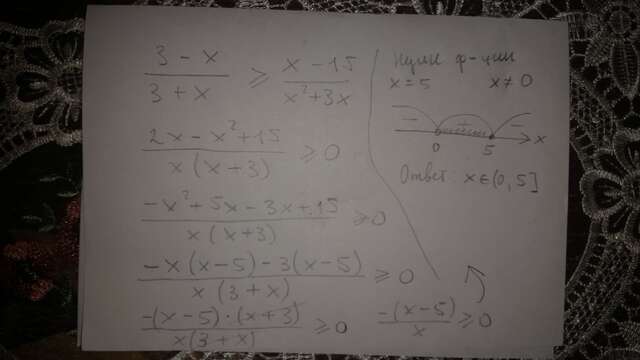 3 - x / 3 + x ≥ x - 15 / x² + 3x
2x - x² + 15 / x (x + 3) ≥ 0
-x² + 5x - 3x + 15 / x (x + 3) ≥ 0
-x (x - 5) - 3(x - 5) / x (3 + x) ≥ 0
-(x - 5) · (x + 3) / x(3 + x) ≥ 0
-(x - 5) / x ≥ 0
Нули ф-ции
x = 5 x ≠ 0
- + -
0 5 x
Ответ: x ∈ (0, 5]